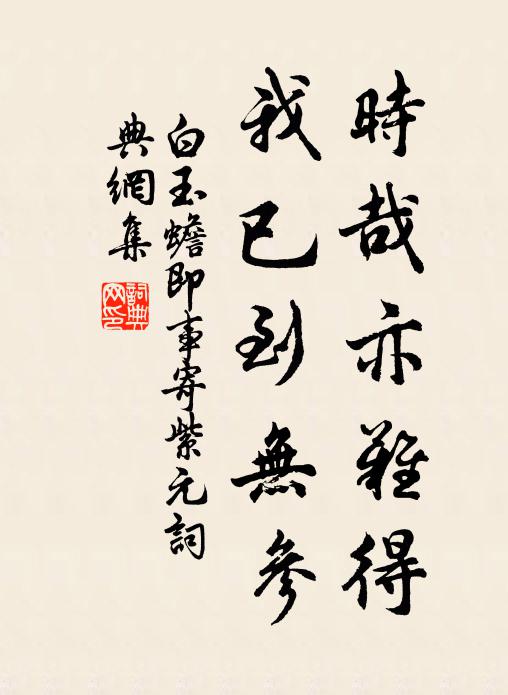 時哉亦難得
我已到無參
白玉蟾即事寄紫元詞
典網集
詞典
网印